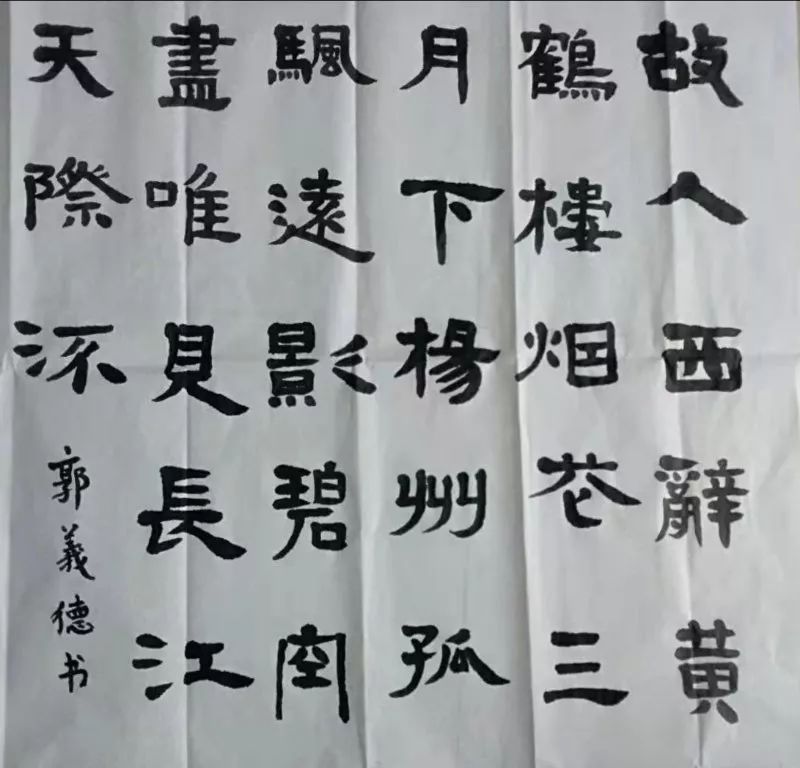 故人西辭黃
鶴樓烟花三
月下楊州孤
颿遠影碧空
盡唯見長江
天際流
郭義德书